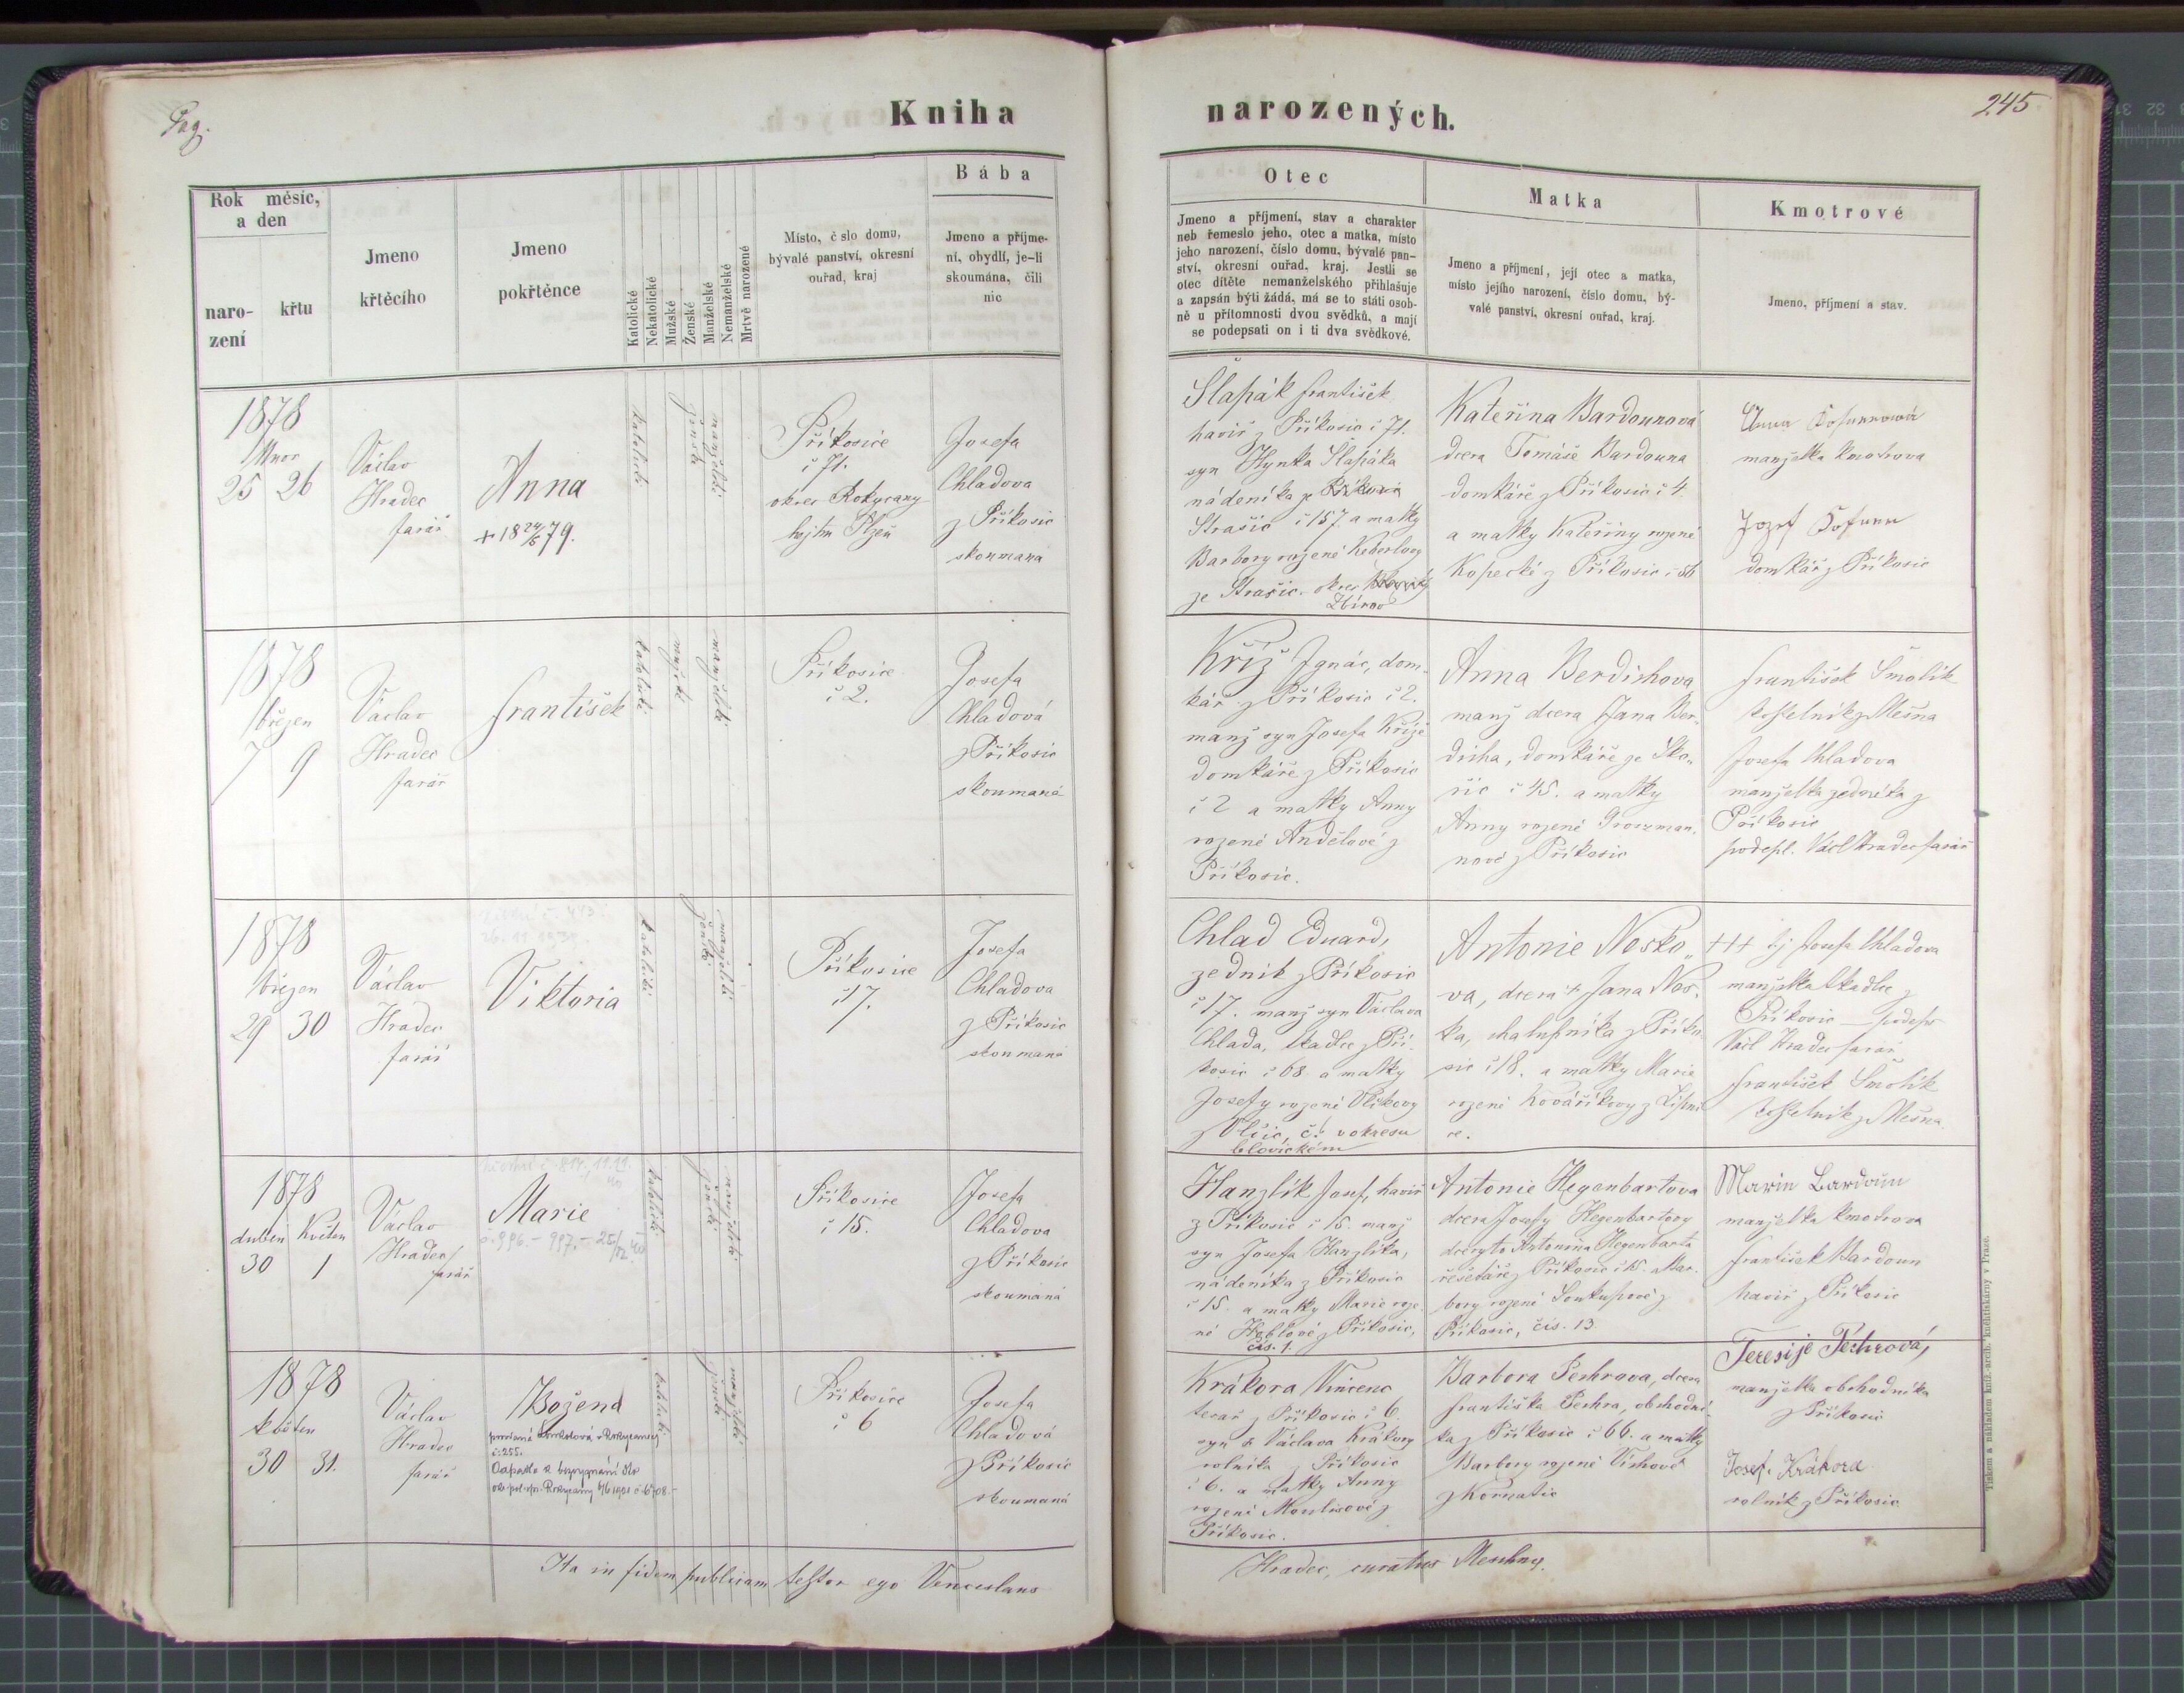 Pag.
Kniha
narozených.
245
Rok měsíc,
a den
naro-
zení
křtu
Jmeno
křtěcího
Jmeno
pokřtěnce
Katolické
Nekatolické
Mužské
Ženské
Manželské
Nemanželské
Mrtvě narozené
Místo, č slo domu,
bývalé panství, okresní
ouřad, kraj
Bába
Jmeno a příjme-
ní, obydlí, je-li
skoumána, čili
nic
Otec
Jmeno a příjmení, stav a charakter
neb řemeslo jeho, otec a matka, místo
jeho narození, číslo domu, bývalé pan-
ství, okresní ouřad, kraj. Jestli se
otec dítěte nemanželského přihlašuje
a zapsán býti žádá, má se to státi osob-
ně u přítomnosti dvou svědků, a mají
se podepsati on i ti dva svědkové.
Matka
Jmeno a příjmení, její otec a matka,
místo jejího narození, číslo domu, bý-
valé panství, okresní ouřad, kraj.
Kmotrové
Jmeno, příjmení a stav.
1878
Unor
25 26
Václav
Hradec
farář
Anna
+ 18 24/6 79.
katolické
ženské
manželské
Příkosice
č 71.
okres Rokycany
hejtm Plzeň
Josefa
Chladova
z Příkosic
skoumana
Šlapák František
havíř z Příkosic č 71.
syn Hynka Šlapáka
nádeníka ze
Strašic č 157. a matky
Barbory rozené Keberlovy
ze Strašic okres
Zbirov
Kateřina Bardounová
dcera Tomáše Bardouna
domkáře z Příkosic č 4.
a matky Kateřiny rozené
Kopecké z Příkosic č 56
Anna
manželka kmotrova
Jozef
domkář z Příkosic
1878
březen
7 9
Václav
Hradec
farář
František
katolické
mužské
manželské
Příkosice
č 2.
Josefa
Chladová
z Příkosic
skoumaná
Kříž Ignác, dom-
kář z Příkosic č 2.
manž syn Josefa Kříže
domkáře z Příkosic
č 2 a matky Anny
rozené Andělové z
Příkosic.
Anna Berdichova
manž dcera Jana Ber-
dicha, domkáře ze Sko-
řic č 45. a matky
Anny rozené Groszman-
nové z Příkosic
František Šmolík
kostelník z Mešna
Josefa Chladova
manželka zedníka z
Příkosic
podepl. Václ Hradec farář
1878
březen
29 30
Václav
Hradec
farář
Viktoria
katolické
ženské
manželské
Příkosice
č 17.
Josefa
Chladova
z Příkosic
skoumaná
Chlad Eduard,
zedník z Příkosic
č 17. manž syn Václava
Chlada, tkadlce z Pří-
kosic č 68 a matky
Josefy rozené Vlčkovy
z Vlčic, č. v okresu
blovickém
Antonie Nosko-
va, dcera + Jana Nos-
ka, chalupníka z Příko-
sic č 18. a matky Marie
rozené Kováříkovy z Lipni-
ce.
+++ tj Josefa Chladova
manželka tkadlce z
Příkosic – podeps
Václ Hradec farář
František Šmolík
kostelník z Mešna.
1878
duben Květen
30 1
Václav
Hradec
farář
Marie
č. 996. – 997. –
katolické
ženské
manželské
Příkosice
č 15.
Josefa
Chladova
z Příkosic
skoumaná
Hanzlík Josef, havíř
z Příkosic č 15. manž
syn Josefa Hanzlíka,
nádeníka z Příkosic
č 15. a matky Marie roze-
né Hoblové z Příkosic,
čís. 1.
Antonie Hegenbartova
dcera Josefy Hegenbartovy
dcery to Antonína Hegenbarta
řešetáře z Příkosic č 15. a Bar-
bory rozené Soukupové z
Příkosic, čís. 13.
Marin Bardoun
manželka kmotrova
František Bardoun
havíř z Příkosic
1878
květen
30 31.
Václav
Hradec
farář
Božena
č. 255.
Odpadla k bezvyznání dle
katolické
ženské
manželské
Příkosice
č 6
Josefa
Chladová
z Příkosic
skoumaná
Krákora Vincenc
tesař z Příkosic č 6
syn + Václava Krákory
rolníka z Příkosic
č 6. a matky Anny
rozené Moulisové z
Příkosic.
Barbora Pechrova, dcera
Františka Pechra, obchodní-
ka z Příkosic č 66. a matky
Barbory rozené Víchové
z Kornatic
Teresije Pechrová,
manželka obchodníka
z Příkosic
Josef Krákora
rolník z Příkosic
Ita in fidem publicam testor ego Venceslaus
Hradec, curatus Meschny.
Tiskem a nákladem kníž.-arch. knihtiskárny v Praze.